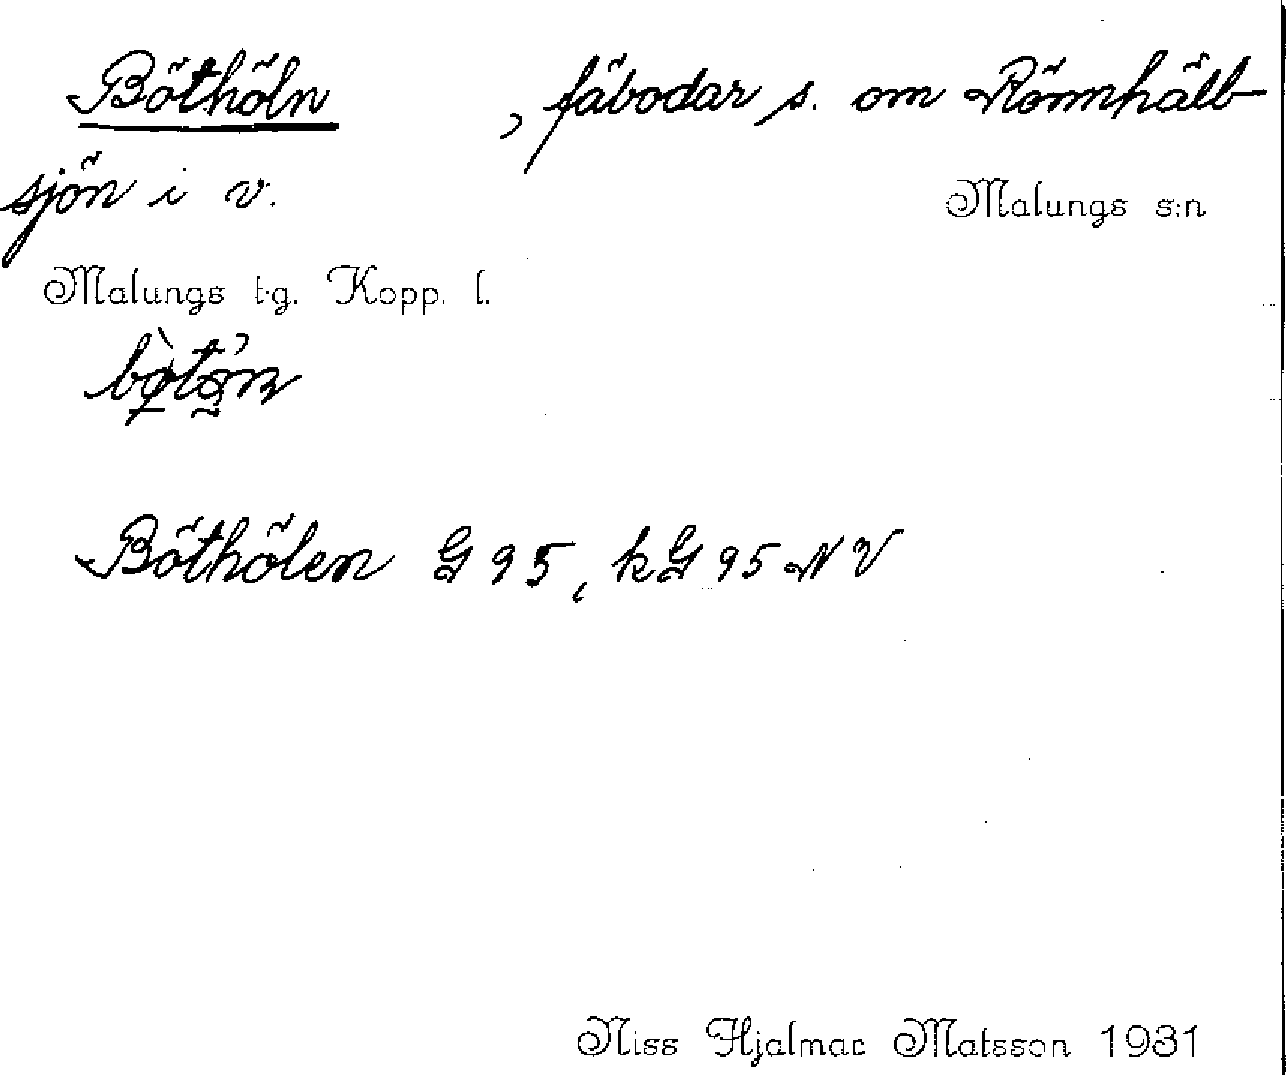 Böthöln , fäbodar s. om Römhälb-
sjön i v.
Malungs s:n
Malungs t.g. Kopp. l.
Böthölen G 95, kG 95 NV
Niss Hjalmar Matsson 1931